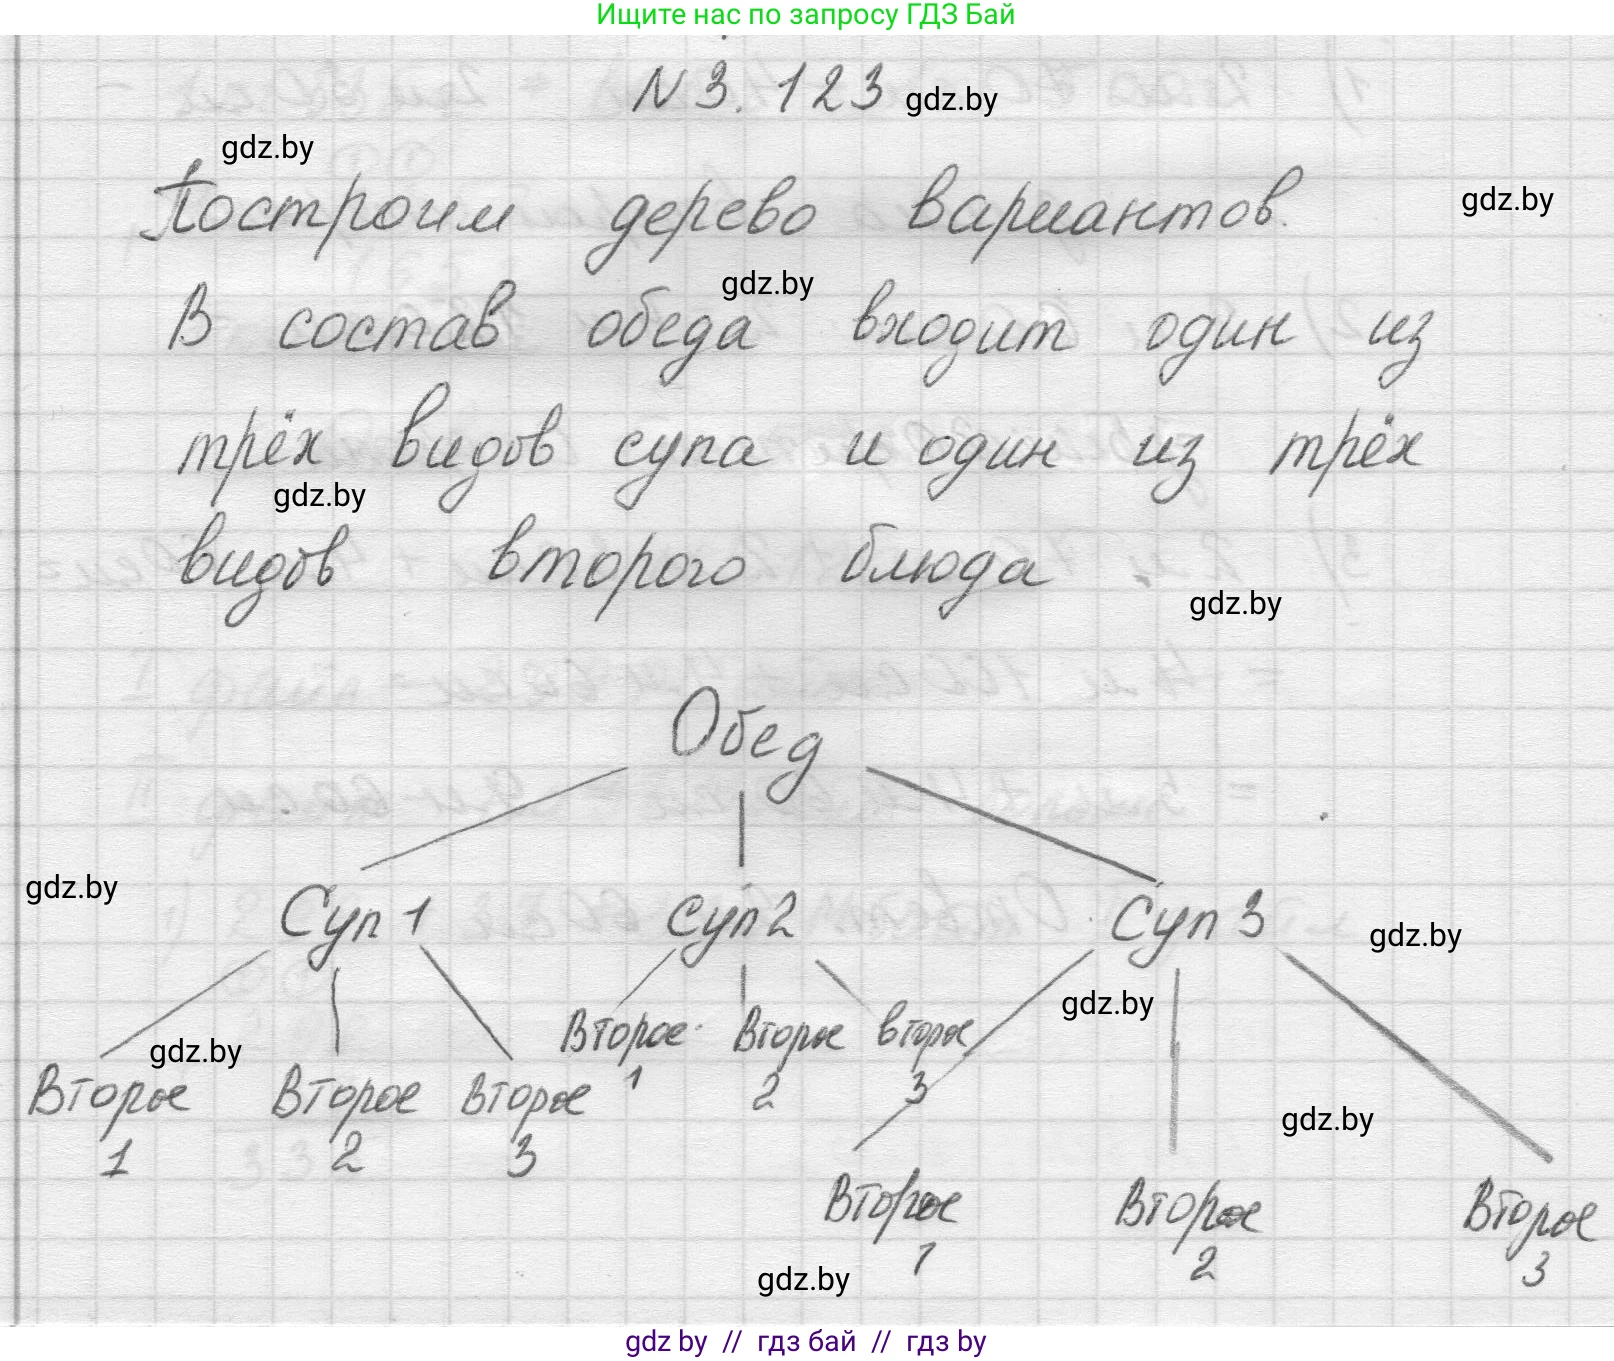 Ищите нас по запросу ГДЗ Бай
N 3. 123 gdz.by
gdz.by
Построим дерево вариантов. gdz.by
gdz.by
В состав обеда входит один из
трёх видов супа и один из трёх
gdz.by
видов второго блюда.
gdz.by
Обед
gdz.by
Суп 1 Суп 2 Суп 3 gdz.by
gdz.by
Второе Второе второе
gdz.by
1 2 3
Второе Второе Второе
1 2 3
gdz.by
Второе Второе Второе
1 2 3
gdz.by
gdz by // гдз бай // гдз by